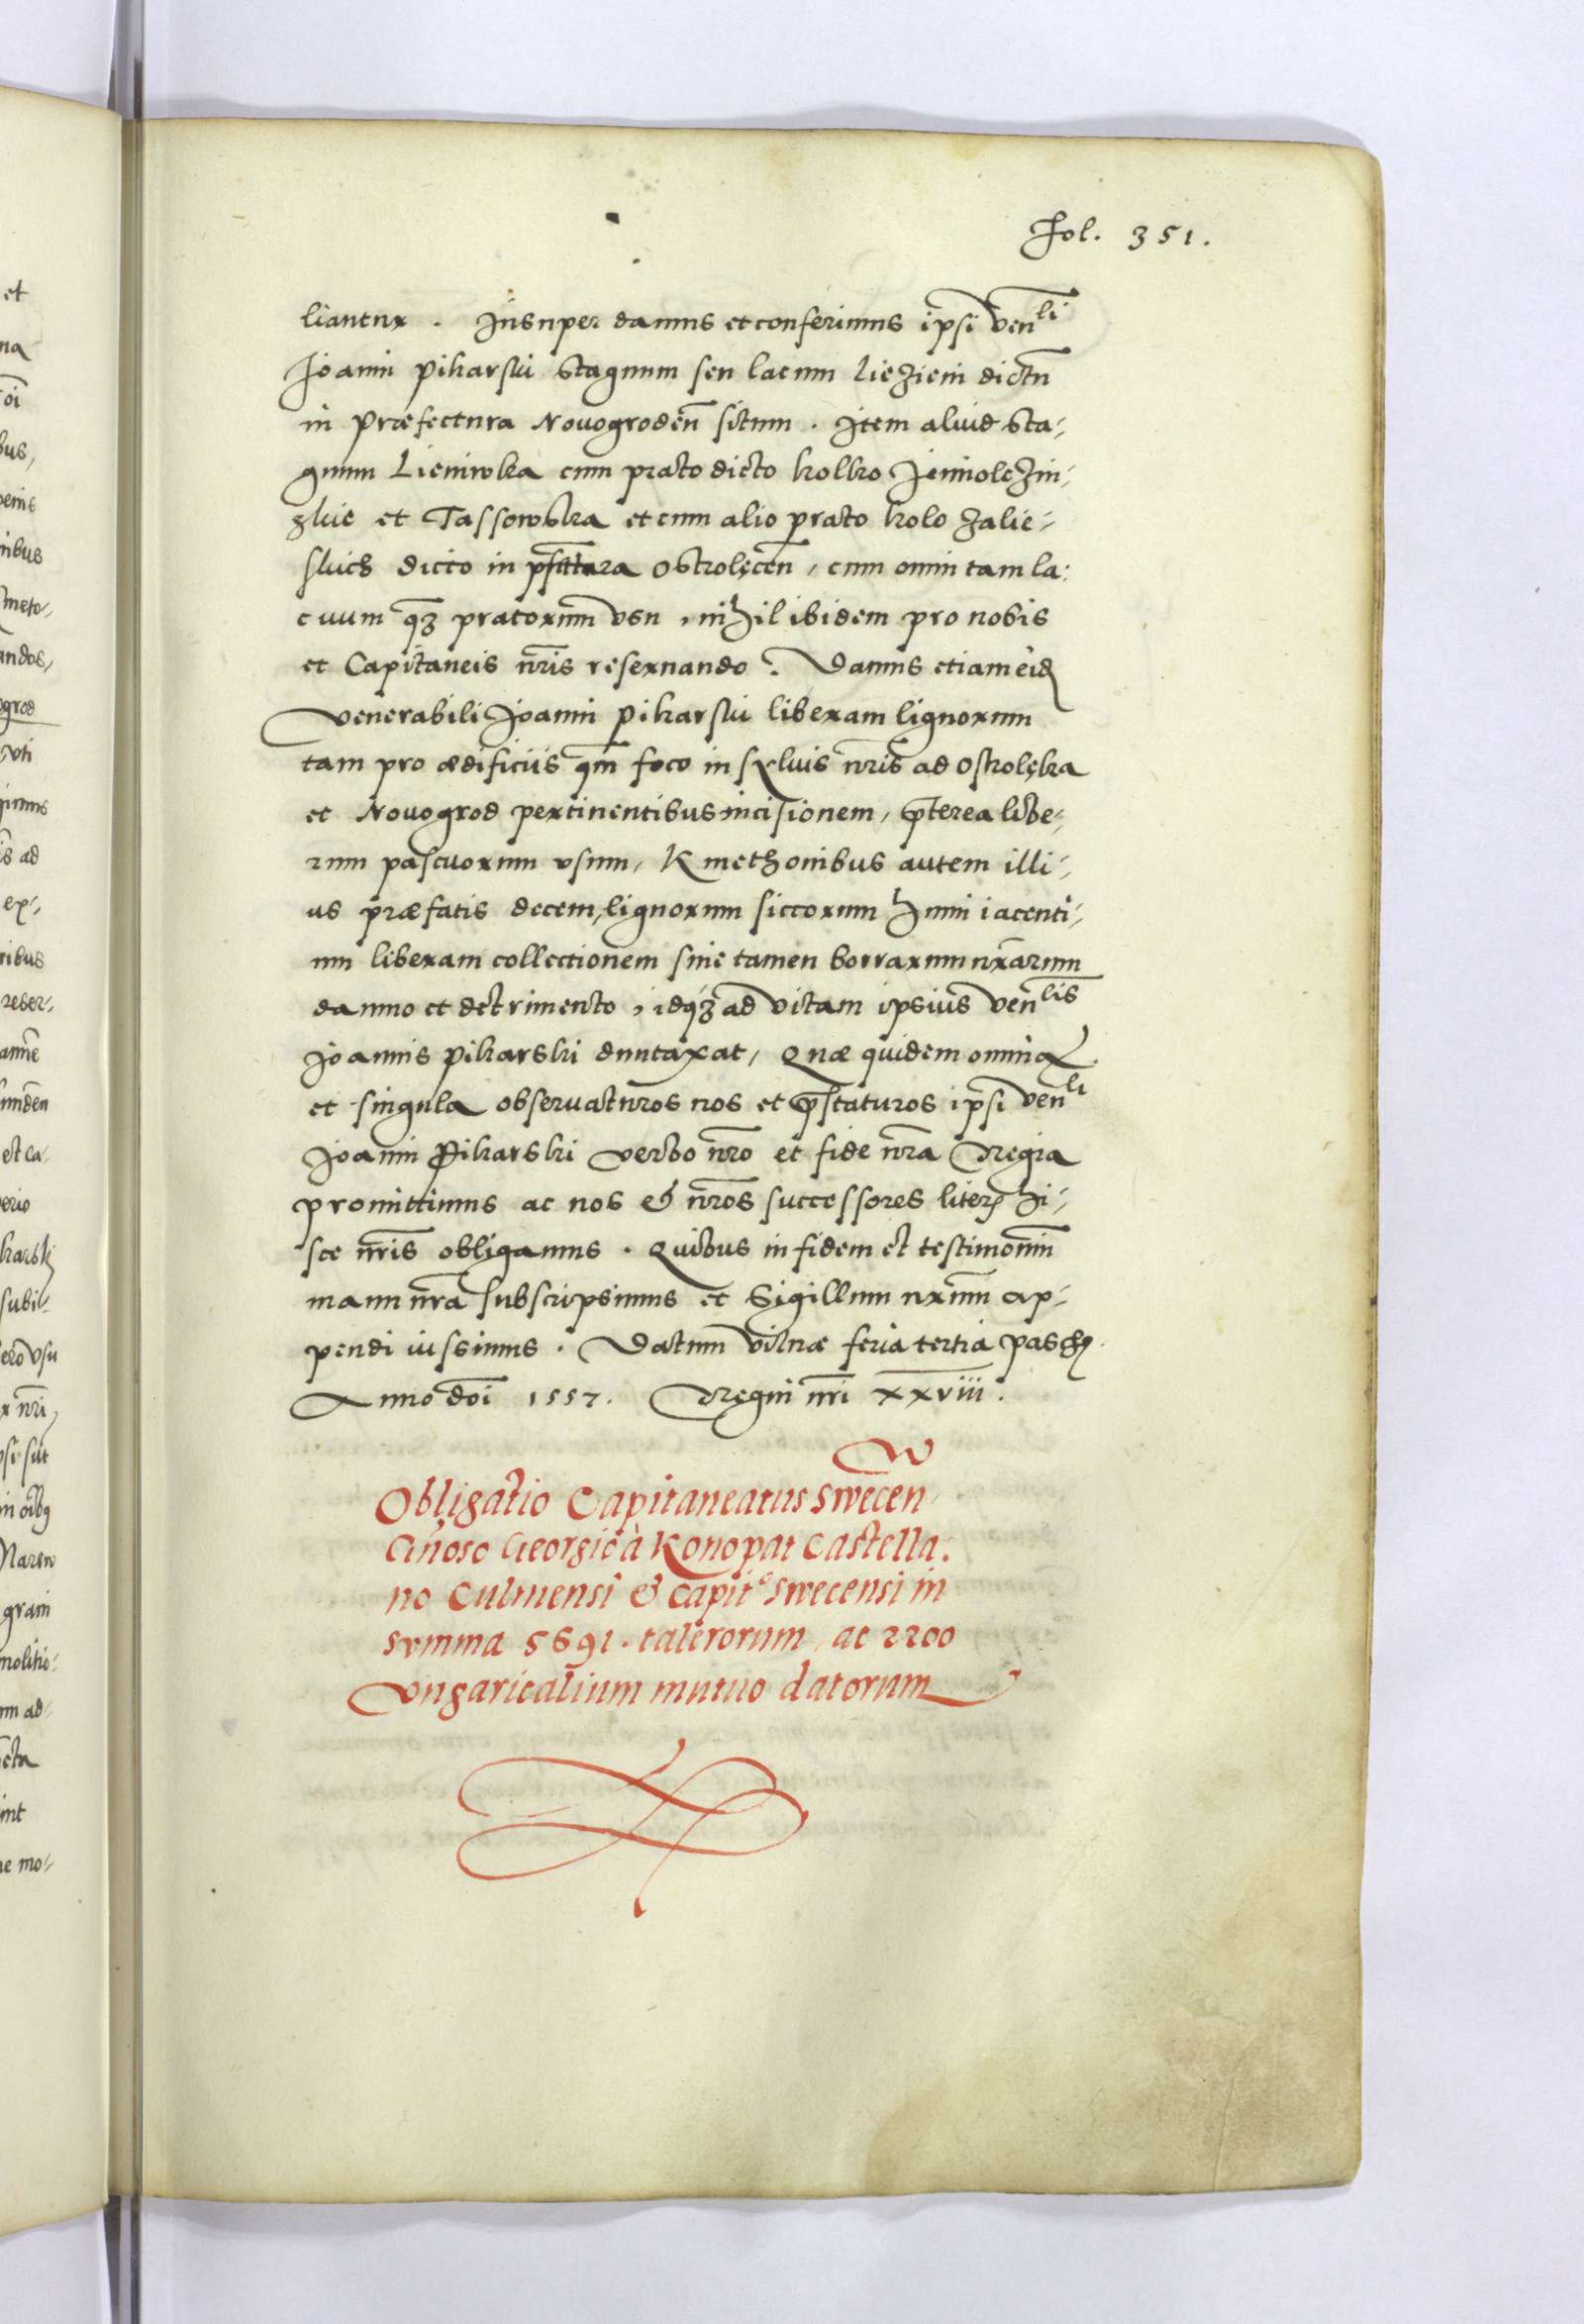 Fol. 351.
liantur. Insuper damus et conferimus ipsi Ven̄li
Joanni Pikarski Stagnum seu lacum Liezieni dictū
in Præfectura Novogroden̄ situm. Item aliud Sta-
gnum Lieniwka cum prato dicto kolko
zkie et Tassowska et cum alio prato kolo Zalie-
skich dicto in Ostrolęcen̄, cum omni tam la-
cuum qȝ pratorum vsu, nihil ibidem pro nobis
et Capitaneis nr̄is reseruando. Damus etiam eid
Venerabili Joanni Pikarski liberam lignorum
tam pro ædificiis qm̄ foco in syluis nr̄is ad Ostrolęka
et Novogrod pertinentibus incisionem, p̄terea libe-
rum pascuorum vsum, Kmethonibus autem illi-
us præfatis decem, lignorum siccorum humi iacenti-
um liberam collectionem sine tamen borrarum nr̄arum
damno et detrimento, idqȝ ad vitam ipsius Ven̄lis
Joannis Pikarski duntaxat, Quæ quidem omnia
et singula obseruaturos nos et p̄staturos ipsi Ven̄li
Joanni Pikarski verbo nr̄o et fide nr̄a Regia
promittimus ac nos & nr̄os successores liter̄ hi-
sce nr̄is obligamus. Quibus in fidem et testimoniū
manu nr̄a subscripsimus et Sigillum nr̄um ap-
pendi iussimus. Datum Vilnæ feria tertia paschę
Anno dōi 1557. Regni nr̄i XXVIII.
Obligatio Capitaneatus Swecen
Gn̄oso Georgio à Konopat Castella-
no Culmensi & Capit̊ Swecensi in
summa 5691. talerorum, ac 2200
Vngaricalium mutuo datorum
et
na
oi
bus,
nibus
meto-
andos,
vti
is ad
ex-
ribus
reser-
et ca-
subil-
vsu
gram
molitio-
um ad-
int
mo-